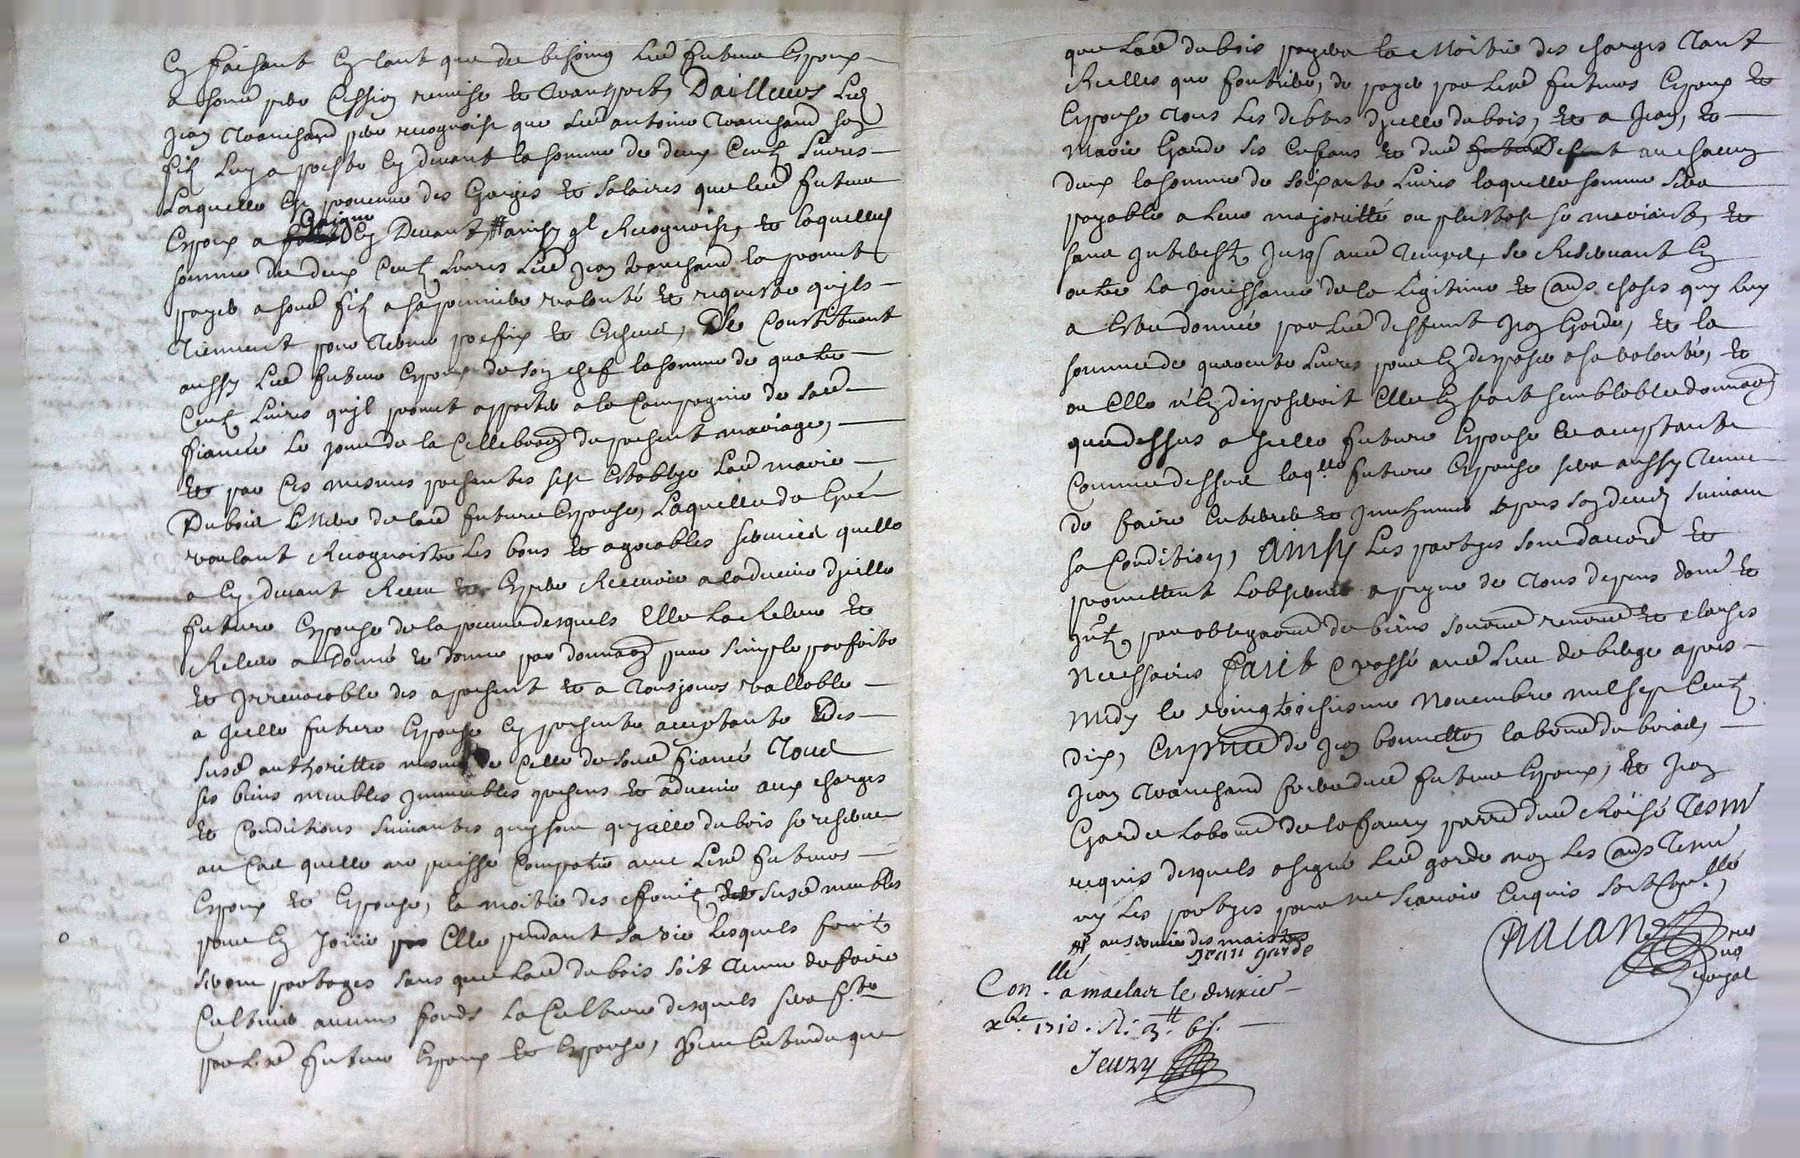 En faisant en tant que de besoing led futeur espoux
a sond pere cession remise et transport, Dailleurs led
Jean Tranchand pere recognoist que led antoine Tranchand son
filz luy a presté cy devant la somme de deux centz livres
laquelle est provenue des gaiges et salaires que led futeur
espoux a gaigné cy devant, # ainsy ql recognoist, et laquelle
somme de deux centz livres led Jean Tranchand la promet
payer a sond filz a sa premiere volonté et requeste quils
tiennent pour terme prefix et escheu, Se constituant
aussy led futeur espoux de son chef la somme de quatre
centz livres quil promet apporter a la compagnie de sad
fiancée le jour de la cellebraon du present mariage,
et par ces mesmes presentes sest establye lad marie
Dubois mere de lad future espouse, laquelle de gré
voulant recognoistre les bons et agreables services quelle
a cy devant receu et espere recevoir a ladvenir dicelle
future espouse de la preuve desquels elle la releve et
relevé a donné et donne par donnaon pure simple parfaite
et irrevocable des a present et a tousjours vallable
a icelle future espouse cy presente acceptante des
susd authorittes mesme de celle de sond fiancé tous
ses biens meubles immeubles presens et advenir aux charges
et conditions suivantes quy sont quicelle dubois se reserve
au cas quelle ne puisse compatir avec lesd futeurs
espoux et espouse, la moitié des fruitz des susd meubles
pour en jouir elle pendant sa vie lesquels fruitz
seront partages sans que lad dubois soit tenue de faire
cultiver aucuns fonds la culture desquels sera fte
par lesd futeurs espoux et espouse, bien entendu que
que lad dubois payera la moitié des charges tant
reelles que fonciere, de payer par lesd futeurs espoux et
espouse tous les debtes dicelle dubois, et a Jean, et
marie Garde ses enfans et dud deffunt a chacun
deux la somme de soixante livres laquelle somme sera
payable a leur majoritté ou plustost se mariant, et
sans interestz jusq aud temps, se reservant en
outre la jouissance de la legitime et aus choses quy luy
a estre donnée par led deffunt Jean Garde, et la
somme de quarente livres pour en disposer a sa volonté, et
ou elle n'en disposeroit elle en fait semblable donnaon
que dessus a icelle future espouse et acceptante
comme dessus laqlle future espouse sera aussy tenue
de faire enterrer et inhumer apres son deces suivant
sa condition, Ainsy les partyes sont daccord et
promettent lobserver a peyne de tous depens domes et
intz, par obligaon de biens soumon renons et clauses
necessaires fait et passé aud lieu de belege apres
midy le vingt sixiesme novembre mil sept centz
dix, en pnce de Jean bonnetton laboureur du boiad,
Jean Tranchand frere dud futeur espoux, et Jean
Garde laboureur de la faury parrain dud choisé tesm
requis desquels a signé led garde non les aus tesm
ny les partyes pour ne scavoir enquis soit conllé
# au service des maistres
jean garde
Conllé
a maclar le dernier
xbre 1710. R. 3tt 6s.
Jeury
nalan no.re royal